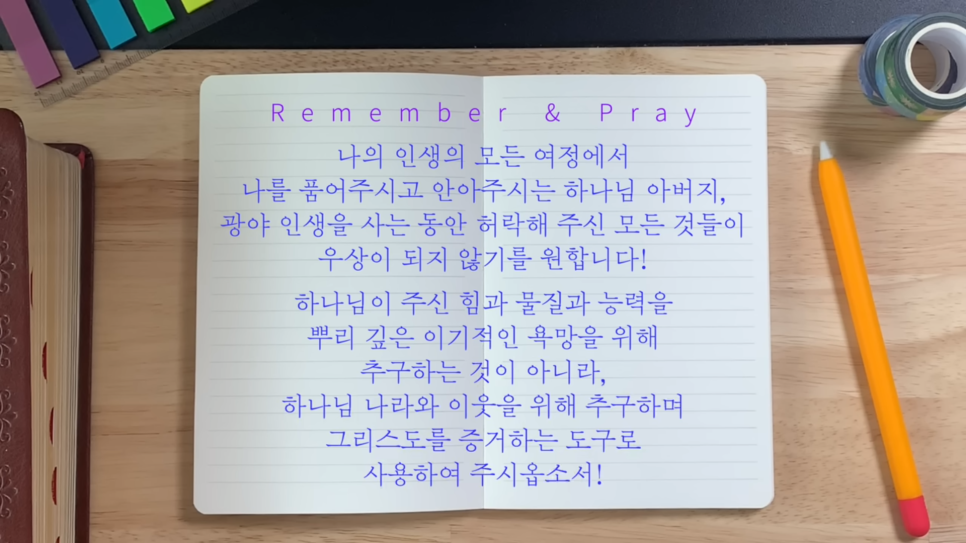 Remember & Pray
나의 인생의 모든 여정에서
나를 품어주시고 안아주시는 하나님 아버지,
광야 인생을 사는 동안 허락해 주신 모든 것들이
우상이 되지 않기를 원합니다!
하나님이 주신 힘과 물질과 능력을
뿌리 깊은 이기적인 욕망을 위해
추구하는 것이 아니라,
하나님 나라와 이웃을 위해 추구하며
그리스도를 증거하는 도구로
사용하여 주시옵소서!